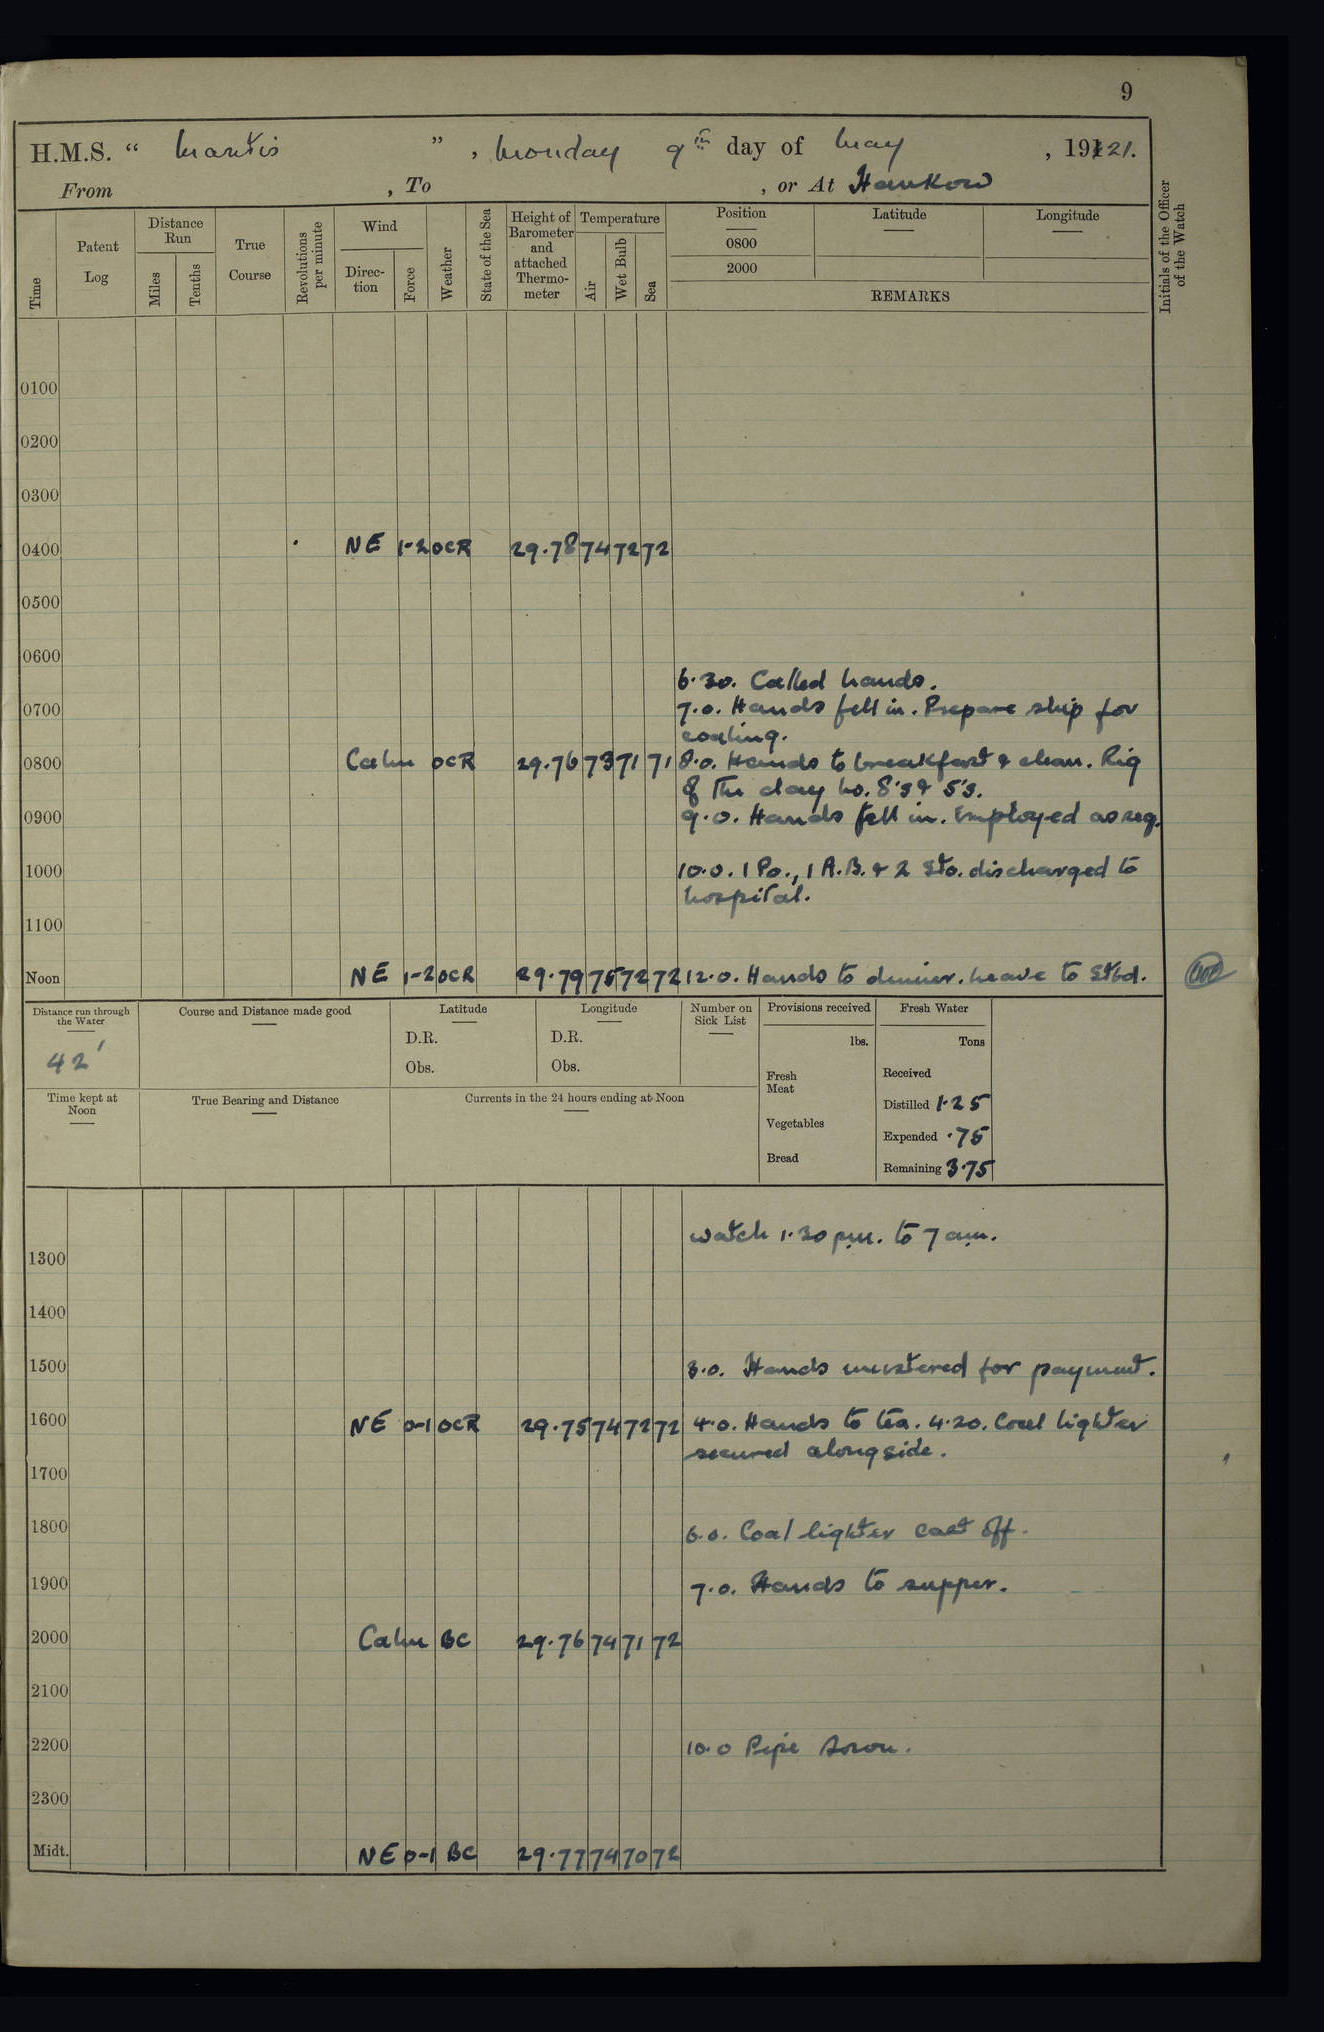 9
H.M.S. “ Mantis ” , Monday 9th day of May , 19121.
From , To , or At Hankow
Time
Patent Log
Distance Run
Miles
Tenths
True Course
Revolutions per minute
Wind
Direc-tion
Force
Weather
State of the Sea
Height of Barometer and attached Thermo-meter
Temperature
Air
Wet Bulb
Sea
Position
0800
2000
Latitude
Longitude
REMARKS
Initials of the Officer of the Watch
0100
0200
0300
0400 NE 1-2 OCR 29.78 74 72 72
0500
0600
6.30. Called hands.
0700 7.0. Hands fell in. Prepare ship for
coaling.
0800 Calm OCR 29.76 73 71 71 8.0. Hands to breakfast & clean. Rig
of the day No. 8's & 5's.
0900 9.0. Hands fell in. Employed as req.
1000 10.0. 1 Po., 1 A.B. & 2 Sto. discharged to
hospital.
1100
Noon NE 1-2 OCR 29.79 75 72 72 12.0. Hands to dinner. Leave to Stbd.
Distance run through the Water
42'
Course and Distance made good
Latitude
D.R.
Obs.
Longitude
D.R.
Obs.
Number on Sick List
Provisions received
lbs.
Fresh Meat
Vegetables
Bread
Fresh Water
Tons
Received
Distilled 1.25
Expended .75
Remaining 3.75
Time kept at Noon
True Bearing and Distance
Currents in the 24 hours ending at Noon
watch 1.30 p.m. to 7 a.m.
1300
1400
1500 3.0. Hands mustered for payment.
1600 NE 0-1 OCR 29.75 74 72 72 4.0. Hands to tea. 4.20. Coal lighter
secured alongside.
1700
1800 6.0. Coal lighter cast off.
1900 7.0. Hands to supper.
2000 Calm BC 29.76 74 71 72
2100
2200 10.0 Pipe down.
2300
Midt. NE 0-1 BC 29.77 74 70 72